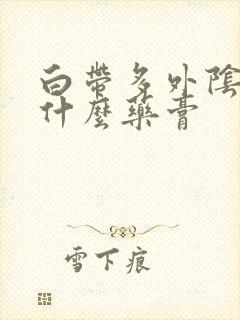 白帶多外陰
什麼藥膏
雪下痕